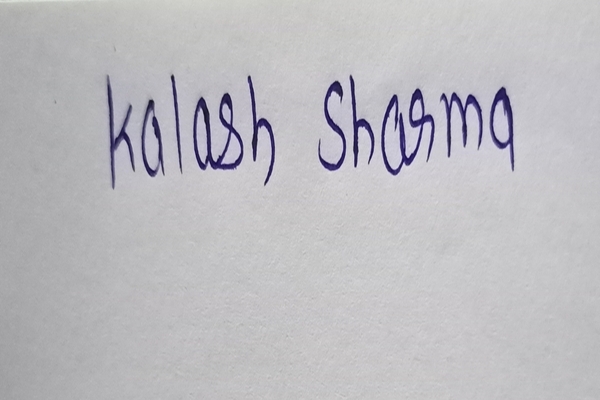 Kalash Sharma